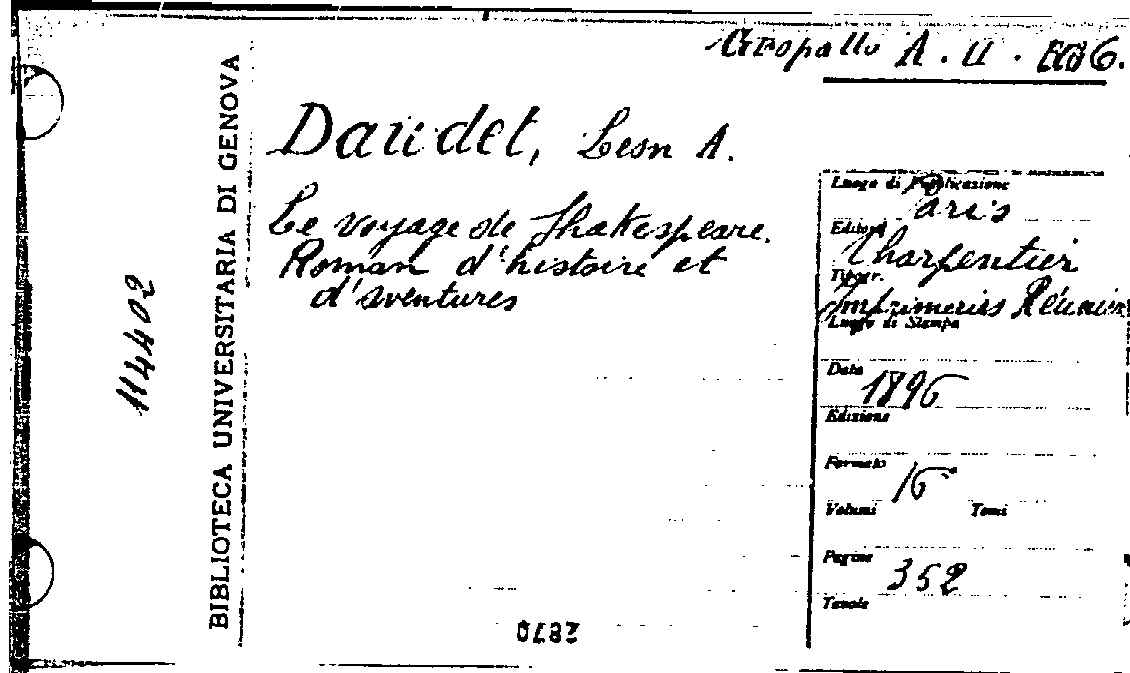 Ceropallo A. II. 886.
BIBLIOTECA UNIVERSITARIA DI GENOVA
114402
Daudet, Leon A.
Le voyage de Shakespeare.
Roman d'histoire et
d'aventures
Luogo di Pubblicazione
Paris
Editore
Charpentier
Tipogr.
Imprimeries Réunies
Luogo di Stampa
Data
1896
Edizione
Formato
16°
Volumi Tomi
Pagine
352
Tavole
2870